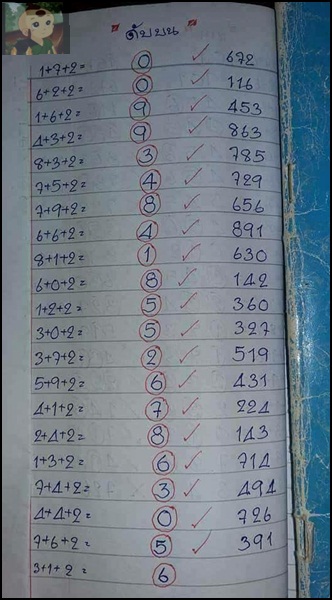 ดับบน
1+7+2= 0 ✓ 672
6+2+2= 0 ✓ 116
1+6+2= 9 ✓ 453
4+3+2= 9 ✓ 863
8+3+2= 3 ✓ 785
7+5+2= 4 ✓ 729
7+9+2= 8 ✓ 656
6+6+2= 4 ✓ 891
8+1+2= 1 ✓ 630
6+0+2= 8 ✓ 142
1+2+2= 5 ✓ 360
3+0+2= 5 ✓ 327
3+7+2= 2 ✓ 519
5+9+2= 6 ✓ 431
4+1+2= 7 ✓ 224
2+4+2= 8 ✓ 143
1+3+2= 6 ✓ 714
7+4+2= 3 ✓ 494
4+4+2= 0 ✓ 726
7+6+2= 5 ✓ 391
3+1+2= 6